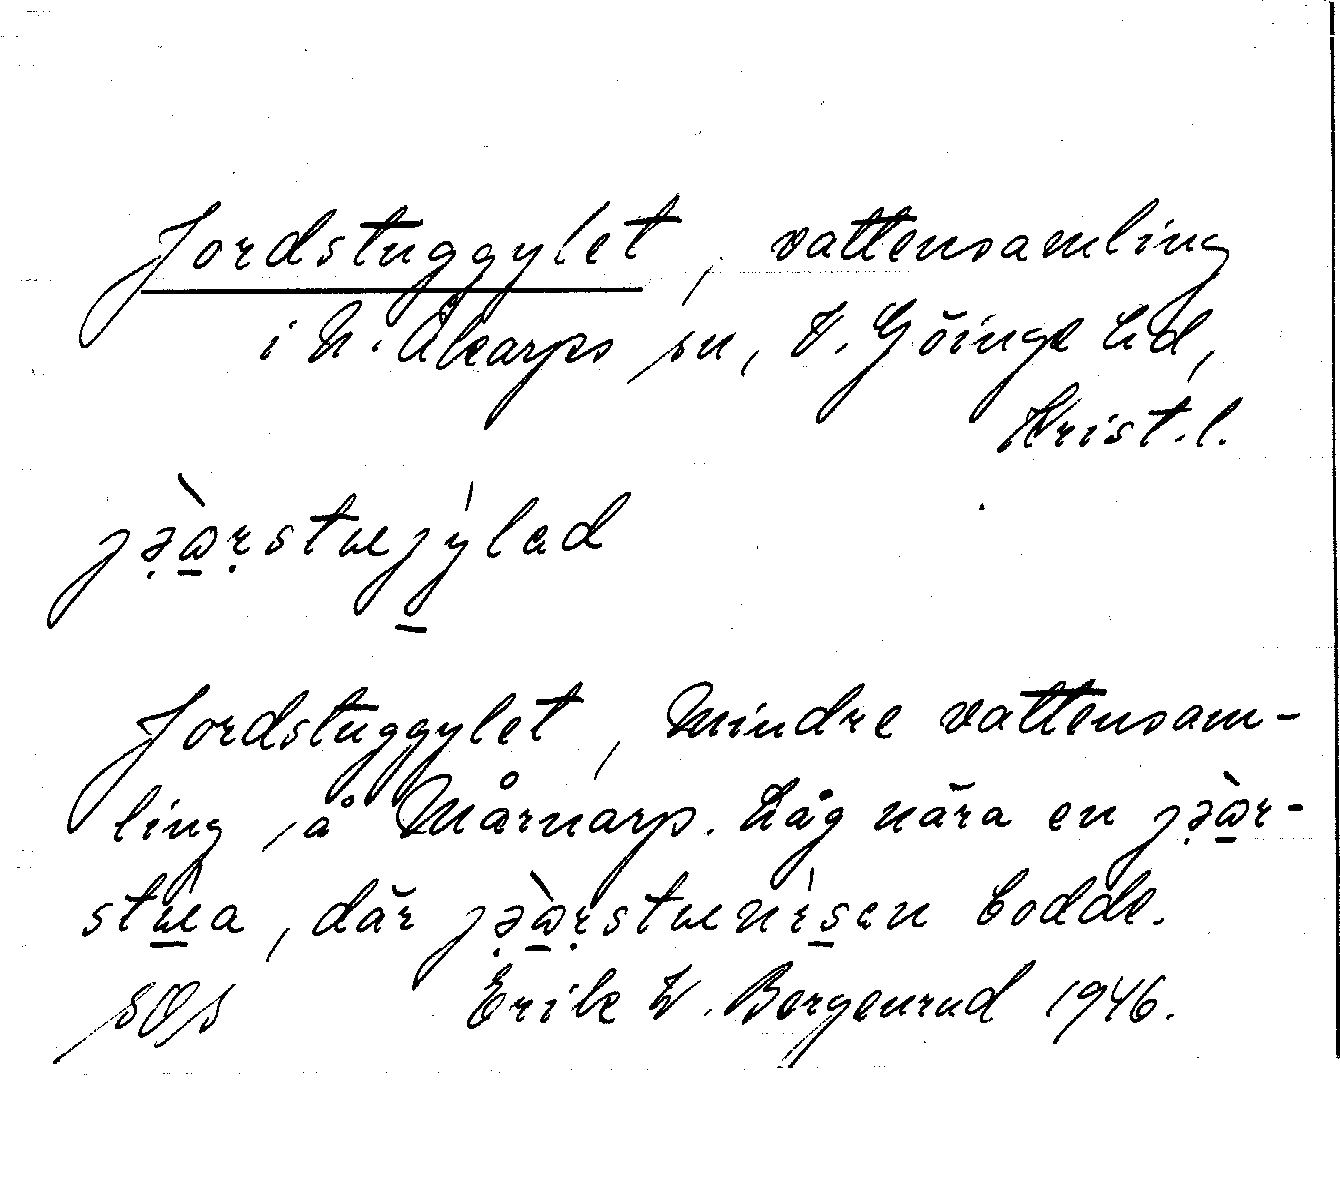 Jordstuggylet, vattensamling
i N. Åkarps sn, V. Göinge hd,
Krist. l.
jəωrstuejylad
Jordstuggylet, Mindre vattensam-
ling på Mårnarp. Låg nära en jəωr-
stuea, där jəωrstuenisen bodde.
Erik W. Bergenrud 1946.